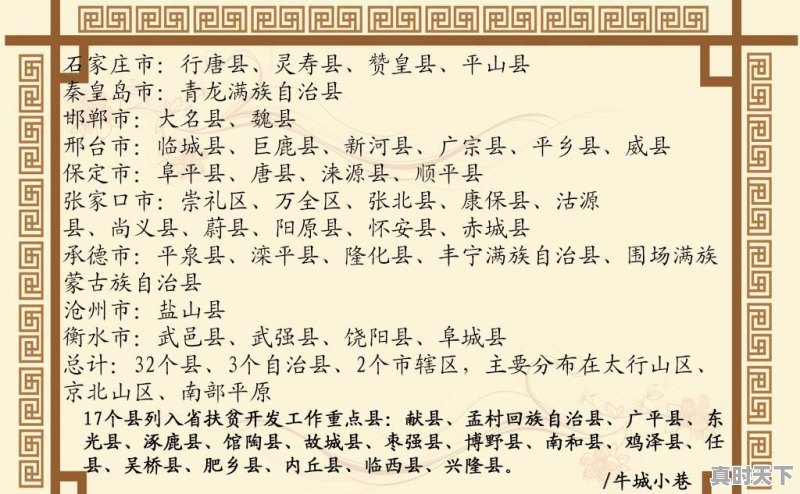 石家庄市：行唐县、灵寿县、赞皇县、平山县
秦皇岛市：青龙满族自治县
邯郸市：大名县、魏县
邢台市：临城县、巨鹿县、新河县、广宗县、平乡县、威县
保定市：阜平县、唐县、涞源县、顺平县
张家口市：崇礼区、万全区、张北县、康保县、沽源
县、尚义县、蔚县、阳原县、怀安县、赤城县
承德市：平泉县、滦平县、隆化县、丰宁满族自治县、围场满族
蒙古族自治县
沧州市：盐山县
衡水市：武邑县、武强县、饶阳县、阜城县
总计：32个县、3个自治县、2个市辖区，主要分布在太行山区、
京北山区、南部平原
17个县列入省扶贫开发工作重点县：献县、孟村回族自治县、广平县、东
光县、涿鹿县、馆陶县、故城县、枣强县、博野县、南和县、鸡泽县、任
县、吴桥县、肥乡县、内丘县、临西县、兴隆县。
/牛城小巷
真时天下